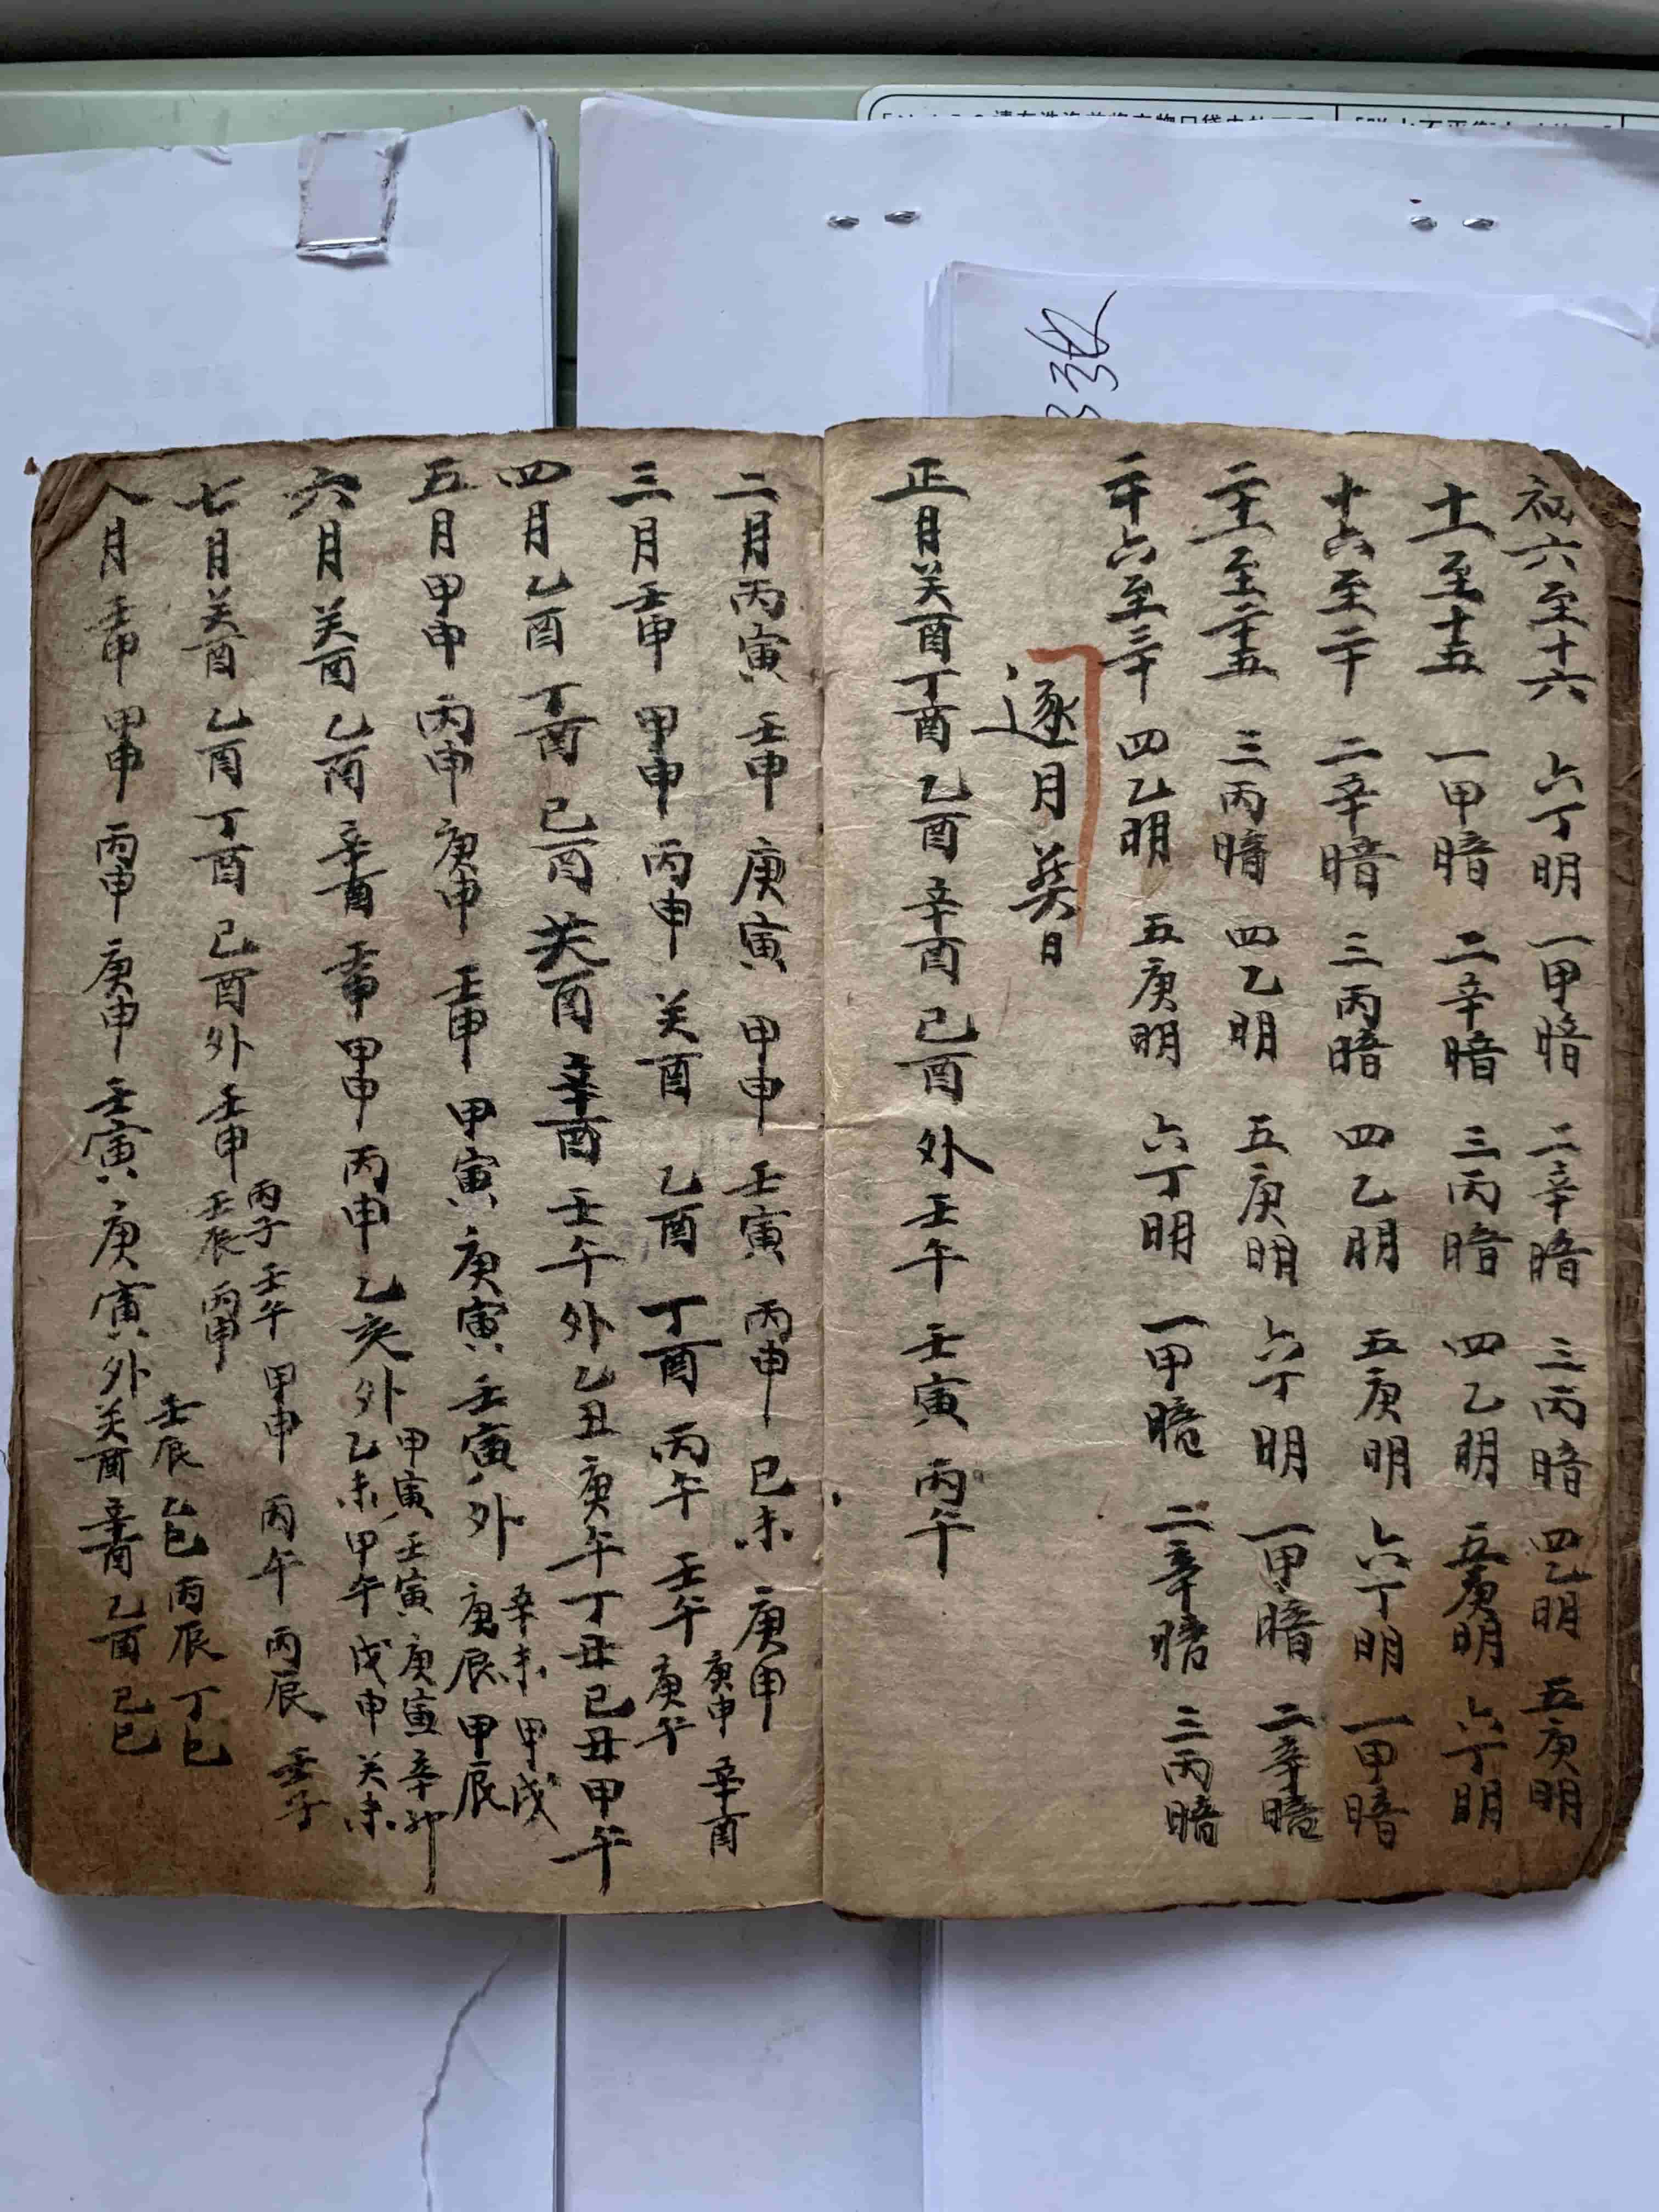 初六至十六 六丁明 一甲暗 二辛暗 三丙暗 四乙明 五庚明
十一至十五 一甲暗 二辛暗 三丙暗 四乙明 五庚明 六丁明
十六至二十 二辛暗 三丙暗 四乙明 五庚明 六丁明 一甲暗
二十一至二十五 三丙暗 四乙明 五庚明 六丁明 一甲暗 二辛暗
二十六至三十 四乙明 五庚明 六丁明 一甲暗 二辛暗 三丙暗
逐月葬日
正月癸酉 丁酉 乙酉 辛酉 己酉 外 壬午 壬寅 丙午
二月丙寅 壬申 庚寅 甲申 壬寅 丙申 己未 庚申
庚申 辛酉
三月壬申 甲申 丙申 癸酉 乙酉 丁酉 丙午 壬午 庚午
四月乙酉 丁酉 己酉 癸酉 辛酉 壬午 外 乙丑 庚午 丁丑 己丑 甲午
辛未 甲戌
五月甲申 丙申 庚申 壬申 甲寅 庚寅 壬寅 外 庚辰 甲辰
甲寅 壬寅 庚寅 辛卯
六月癸酉 乙酉 辛酉 壬申 甲申 丙申 乙亥 外 乙未 甲午 戊申 癸未
丙子 壬午 甲申 丙午 丙辰 壬子
七月癸酉 乙酉 丁酉 己酉 外 壬申 壬辰 丙申
壬辰 乙巳 丙辰 丁巳
八月壬申 甲申 丙申 庚申 壬寅 庚寅 外 癸酉 辛酉 乙酉 己巳
33张